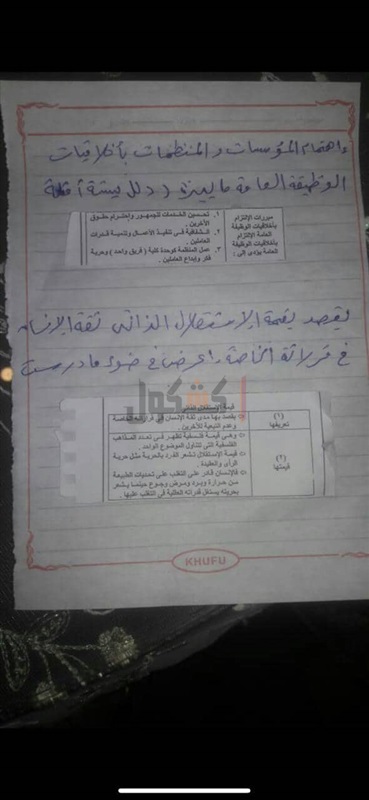 اهتمام المؤسسات والمنظمات بأخلاقيات
الوظيفة العامة ما يبرره (دلل بستة أدلة
مبررات الالتزام بأخلاقيات الوظيفة العامة الالتزام بأخلاقيات الوظيفة العامة يؤدى إلى :
١. تحسين الخدمات للجمهور واحترام حقوق
الآخرين .
٢. الشفافية فى تنفيذ الأعمال وتنمية قدرات
العاملين .
٣. عمل المنظمة كوحدة كلية ( فريق واحد ) وحرية
فكر وإبداع العاملين .
يقصد بقيمة الاستقلال الذاتى ثقة الإنسان
فى قراراته الخاصة . اعرض فى ضوء ما درست
كشكول
قيمة الاستقلال الذاتى
(١)
تعريفها
يقصد بها مدى ثقة الإنسان فى قراراته الخاصة
وعدم التبعية للآخرين .
(٢)
قيمتها
وهى قيمة فلسفية تظهر فى تعدد المذاهب
الفلسفية التى تتناول الموضوع الواحد .
قيمة الاستقلال تشعر الفرد بالحرية مثل حرية
الرأى والعقيدة .
فالإنسان قادر على التغلب على تحديات الطبيعة
من حرارة وبرد ومرض وجوع حينما يشعر
بحريته يستغل قدراته العقلية فى التغلب عليها .
KHUFU